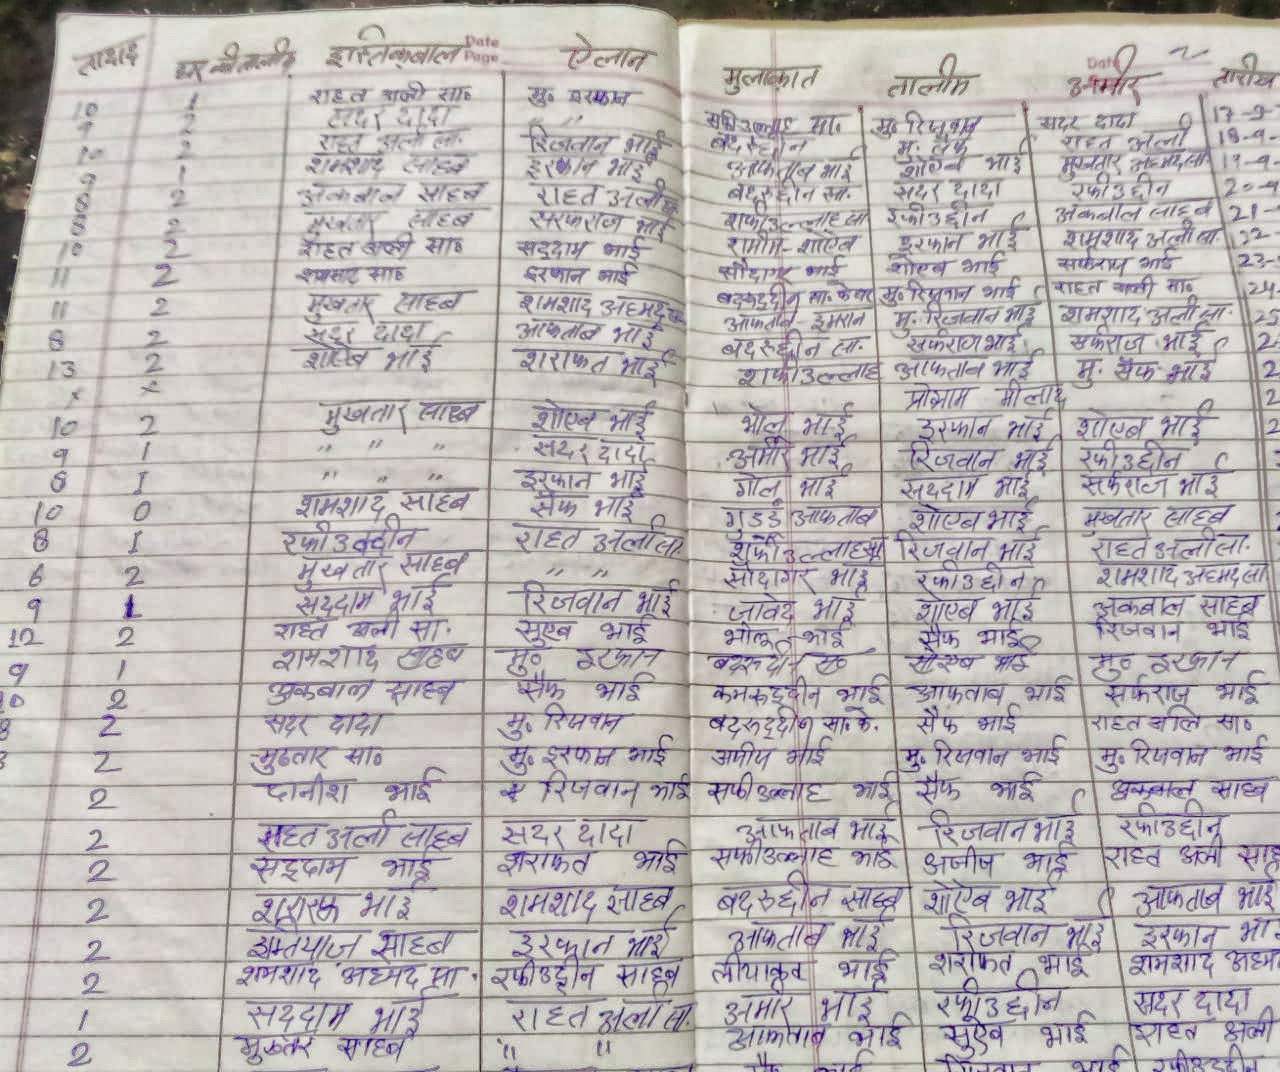 तादाद घर की तालीम इस्तिकबाल Date Page ऐलान मुलाकात तालीम Date अमीर तारीख
10 1 राहत अली सा० मु० इरफान सफीउल्लाह सा. मु० रिजवान सदर दादा 17-9-
9 2 सदर दादा " " बदरुद्दीन मु. सैफ राहत अली 18-9-
10 2 राहत अली सा. रिजवान भाई आफताब भाई शोएब भाई मुखतार अहमद सा. 19-9-
9 1 शमशाद साहब इरफान भाई बदरुद्दीन सा. सदर दादा रफीउद्दीन 20-9
8 2 अकबाल साहब राहत अली शफीउल्लाह सा रफीउद्दीन अकबाल साहब 21-
8 2 मुखतार साहब सरफराज भाई शमीम-शोएब इरफान भाई शमशाद अली सा. 22-
10 2 राहत अली सा० सद्दाम भाई सौदागर भाई शोएब भाई सर्फराज भाई 23-
11 2 शमशाद सा० इरफान भाई बदरुद्दीन सा. के मु० रिजवान भाई राहत अली सा० 24
11 2 मुखतार साहब शमशाद अहमद आफताब-इमरान मु. रिजवान भाई शमशाद अली सा.
8 2 सदर दादा आफताब भाई बदरुद्दीन सा. सर्फराज भाई सर्फराज भाई
13 2 शोएब भाई शराफत भाई शफीउल्लाह आफताब भाई मु. सैफ भाई 2
x x प्रोग्राम मीलाद 2
10 2 मुखतार साहब शोएब भाई भोलू भाई इरफान भाई शोएब भाई 2
9 1 " " " सदर दादा अमीर भाई रिजवान भाई रफीउद्दीन
8 I " " " इरफान भाई गोलू भाई सद्दाम भाई सर्फराज भाई
10 0 शमशाद साहब सैफ भाई गुड्डू आफताब शोएब भाई मुखतार साहब
8 I रफीउद्दीन राहत अली सा. शफीउल्लाह सा रिजवान भाई राहत अली सा.
6 2 मुखतार साहब " " सौदागर भाई रफीउद्दीन शमशाद अहमद सा
9 1 सद्दाम भाई रिजवान भाई जावेद भाई शोएब भाई अकबाल साहब
12 2 राहत अली सा. सुएब भाई भोलू भाई सैफ भाई रिजवान भाई
9 1 शमशाद साहब मु० इरफान बदरुद्दीन सा० सोएब भाई मु० इरफान
10 2 अकबाल साहब सैफ भाई कमरुद्दीन भाई आफताब भाई सर्फराज भाई
8 2 सदर दादा मु० रिजवान बदरुद्दीन सा. के. सैफ भाई राहत अलि सा०
2 मुख्तार सा० मु० इरफान भाई अजीज भाई मु० रिजवान भाई मु० रिजवान भाई
2 दानीश भाई रिजवान भाई सफीउल्लाह भाई सैफ भाई अकबाल साहब
2 राहत अली साहब सदर दादा आफताब भाई रिजवान भाई रफीउद्दीन
2 सद्दाम भाई शराफत भाई सफीउल्लाह भाई अजीज भाई राहत अली साह
2 भाई शमशाद साहब बदरुद्दीन साहब शोएब भाई आफताब भाई
2 इम्तयाज साहब इरफान भाई आफताब भाई रिजवान भाई इरफान भाई
2 शमशाद अहमद सा. रफीउद्दीन साहब लीयाकत भाई शराफत भाई शमशाद अहम
1 सद्दाम भाई राहत अली सा. अमीर भाई रफीउद्दीन सदर दादा
2 मुख्तार साहब " " आफताब भाई सुएब भाई राहत अली
सैफ भाई रिजवान भाई रफीउद्दीन